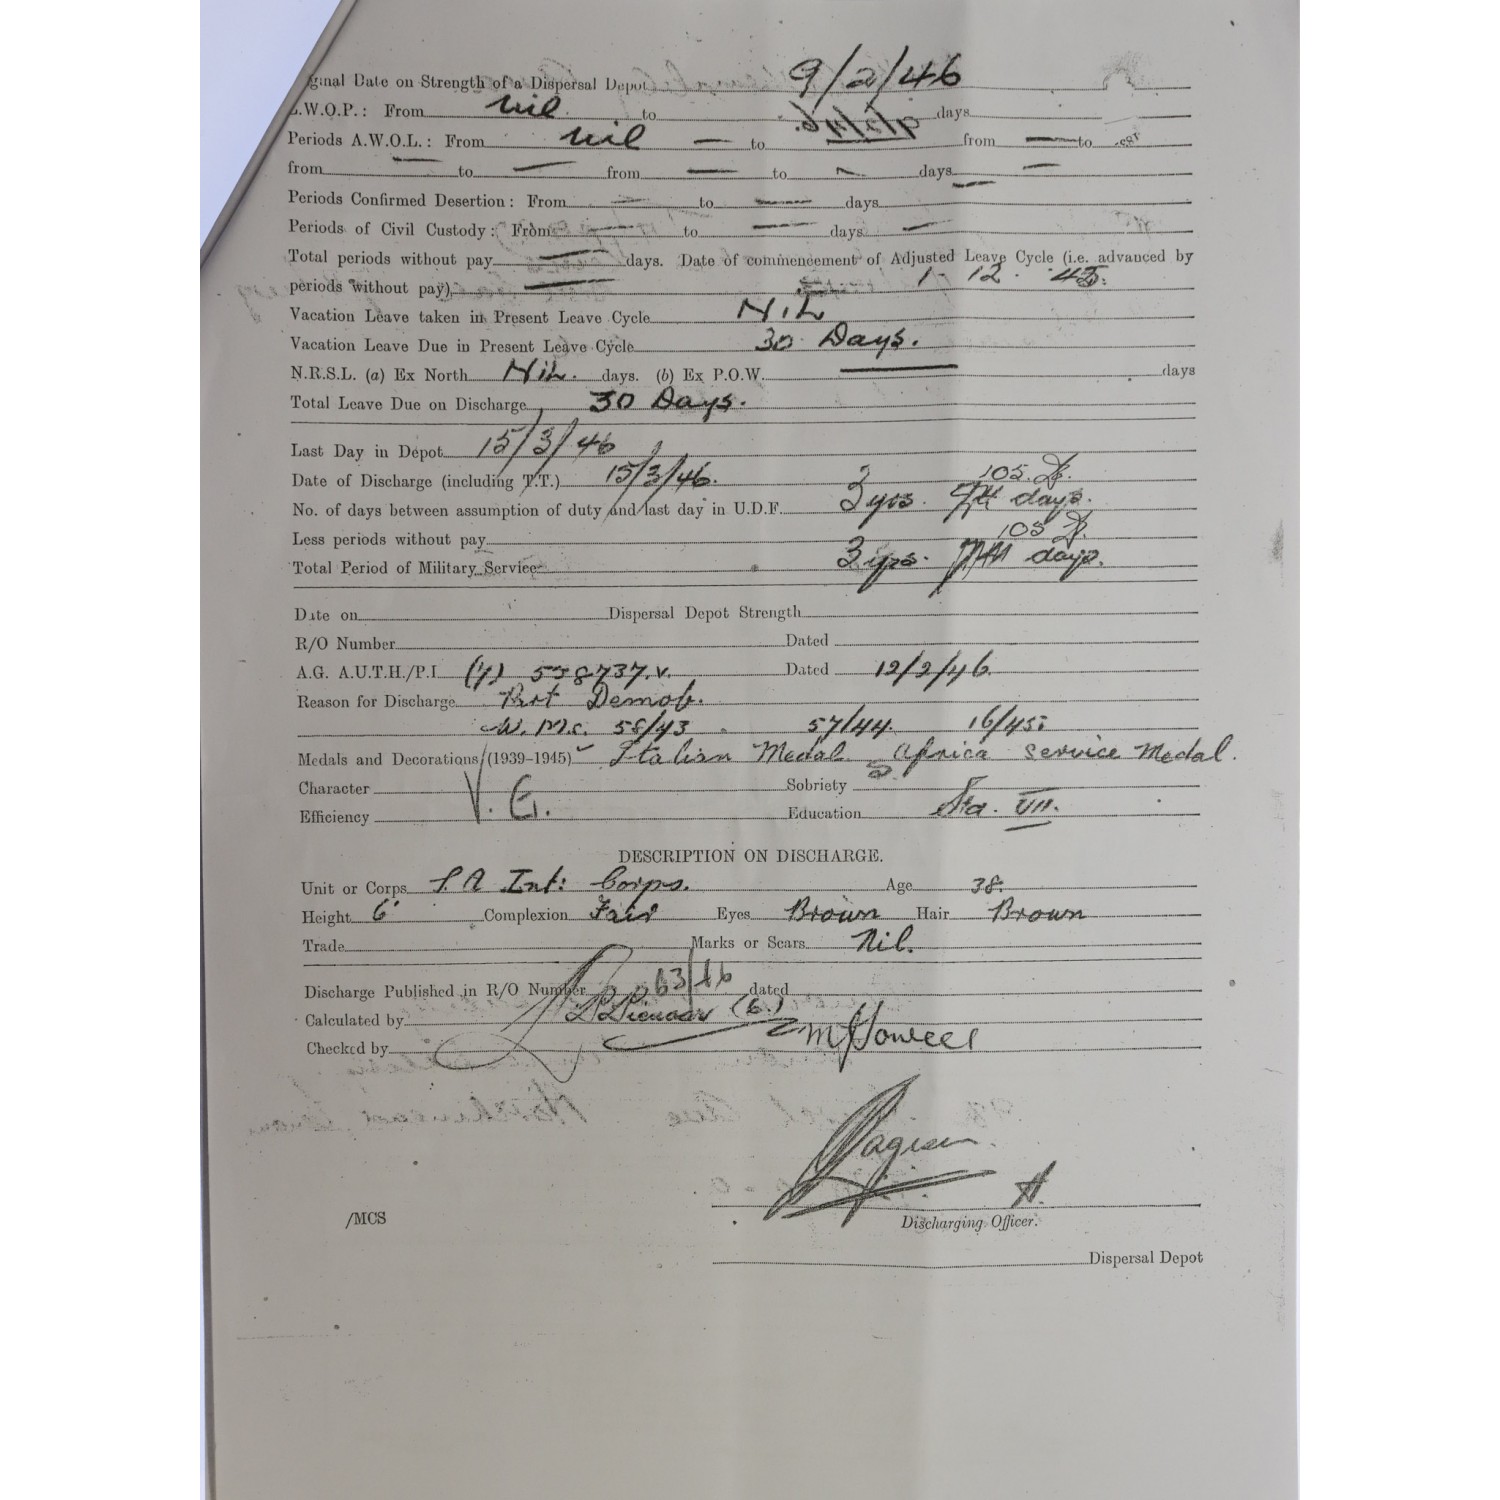 ginal Date on Strength of a Dispersal Depot 9/2/46
.W.O.P.: From nil to days
Periods A.W.O.L.: From nil — to — from — to
from — to — from — to — days —
Periods Confirmed Desertion: From — to — days
Periods of Civil Custody: From — to — days —
Total periods without pay — days. Date of commencement of Adjusted Leave Cycle (i.e. advanced by
periods without pay) — 1 - 12 - 45.
Vacation Leave taken in Present Leave Cycle NiL
Vacation Leave Due in Present Leave Cycle 30 Days.
N.R.S.L. (a) Ex North NiL. days. (b) Ex P.O.W. — days
Total Leave Due on Discharge 30 Days.
Last Day in Depot 15/3/46
Date of Discharge (including T.T.) 15/3/46. 105.
No. of days between assumption of duty and last day in U.D.F. 3 yrs. days.
105
Less periods without pay
Total Period of Military Service 3 yrs. days.
Date on Dispersal Depot Strength
R/O Number Dated
A.G. A.U.T.H./P.I. (4) 558737.V. Dated 12/2/46
Reason for Discharge Demob.
W.M.S. 58/43 57/44. 16/45.
Medals and Decorations (1939–1945) Italian Medal Africa Service Medal.
Character Sobriety
V. G.
Efficiency Education Std. VII.
DESCRIPTION ON DISCHARGE.
Unit or Corps Int: Corps. Age 38.
Height 6' Complexion Fair Eyes Brown Hair Brown
Trade Marks or Scars Nil.
Discharge Published in R/O Number 63/46 dated
Calculated by Pienaar
Checked by
/MCS
Discharging Officer.
Dispersal Depot